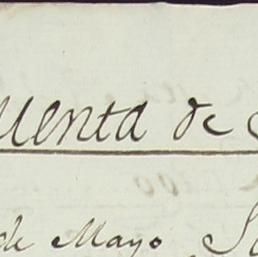 uenta de
de Mayo